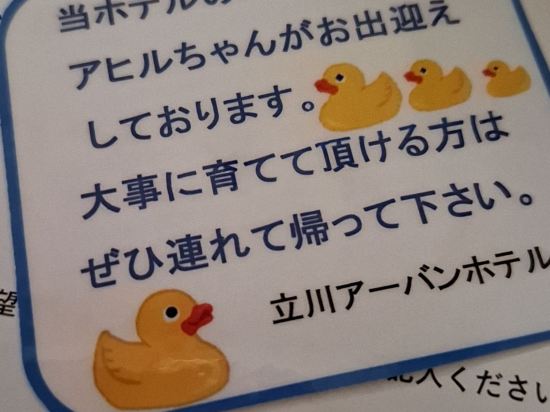 当ホテルの
アヒルちゃんがお出迎え
しております。
大事に育てて頂ける方は
ぜひ連れて帰って下さい。
立川アーバンホテル
望
記入ください